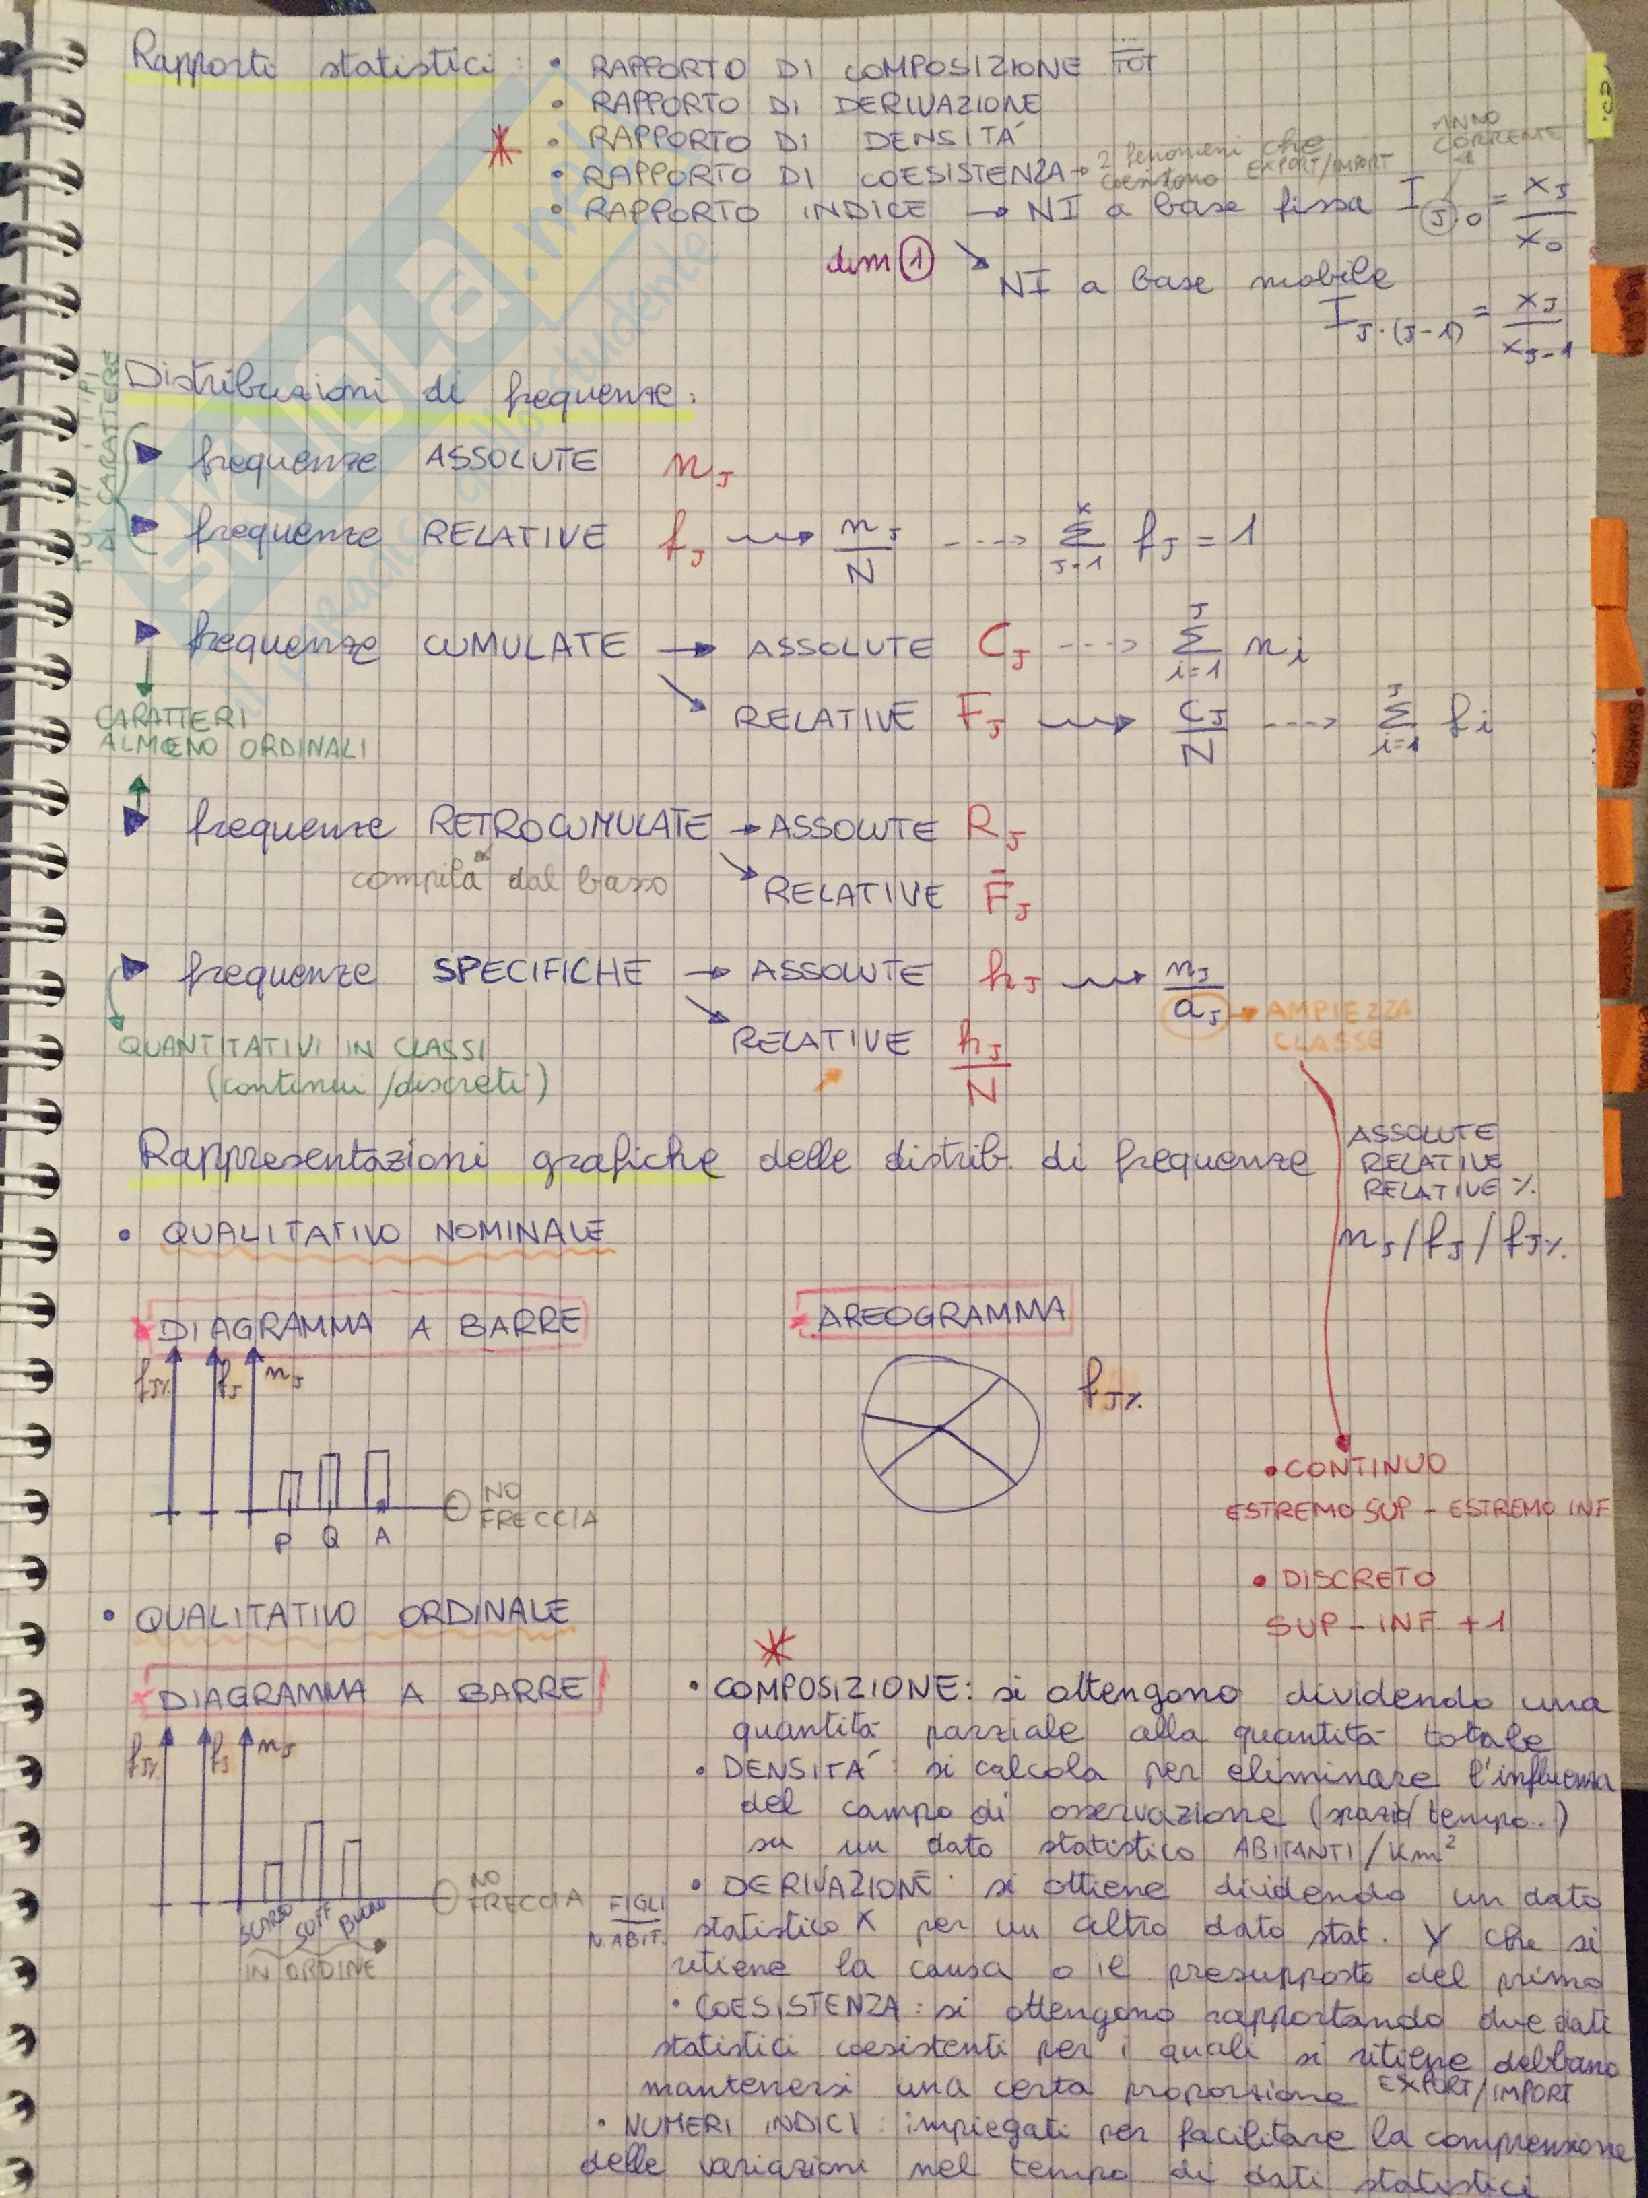 Rapporti statistici: • RAPPORTO DI COMPOSIZIONE .../TOT
• RAPPORTO DI DERIVAZIONE
* • RAPPORTO DI DENSITÁ
• RAPPORTO DI COESISTENZA → 2 fenomeni che coesistono EXPORT/IMPORT
ANNO CORRENTE
• RAPPORTO INDICE → NI a base fissa I J·0 = xJ/x0
dim 1
NI a base mobile
I J·(J-1) = xJ/xJ-1
Distribuzioni di frequenze:
TUTTI I TIPI
DI CARATTERE
▶ frequenze ASSOLUTE nJ
▶ frequenze RELATIVE fJ → nJ/N ---> Σ J=1 K fJ = 1
▶ frequenze CUMULATE → ASSOLUTE CJ ---> Σ i=1 J ni
RELATIVE FJ → CJ/N ---> Σ i=1 J fi
CARATTERI
ALMENO ORDINALI
▶ frequenze RETROCUMULATE → ASSOLUTE RJ
compila dal basso
RELATIVE F̄J
▶ frequenze SPECIFICHE → ASSOLUTE hJ → nJ/aJ → AMPIEZZA
CLASSE
RELATIVE hJ/N
QUANTITATIVI IN CLASSI
(continui/discreti)
Rappresentazioni grafiche delle distrib. di frequenze
ASSOLUTE
RELATIVE
RELATIVE %
nJ/fJ/fJ%
• QUALITATIVO NOMINALE
* DIAGRAMMA A BARRE
* AREOGRAMMA
fJ% fJ nJ
fJ%
P Q A
NO
FRECCIA
• CONTINUO
ESTREMO SUP - ESTREMO INF
• DISCRETO
SUP - INF + 1
• QUALITATIVO ORDINALE
* DIAGRAMMA A BARRE
fJ% fJ nJ
SCARSO SUFF BUONO
IN ORDINE
NO
FRECCIA
*
• COMPOSIZIONE: si ottengono dividendo una
quantità parziale alla quantità totale
• DENSITÁ: si calcola per eliminare l'influenza
del campo di osservazione (spazio/tempo..)
su un dato statistico ABITANTI/Km²
• DERIVAZIONE: si ottiene dividendo un dato
FIGLI/N.ABIT. statistico X per un altro dato stat. Y che si
ritiene la causa o il presupposto del primo
• COESISTENZA: si ottengono rapportando due dati
statistici coesistenti per i quali si ritiene debbano
mantenersi una certa proporzione EXPORT/IMPORT
• NUMERI INDICI: impiegati per facilitare la comprensione
delle variazioni nel tempo di dati statistici